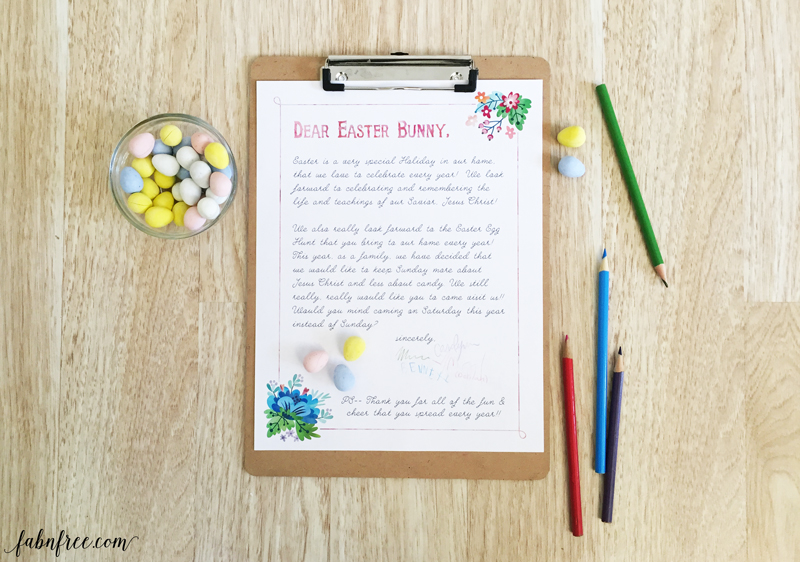 DEAR EASTER BUNNY,
Easter is a very special Holiday in our home,
that we love to celebrate every year! We look
forward to celebrating and remembering the
life and teachings of our Savior, Jesus Christ!
We also really look forward to the Easter Egg
Hunt that you bring to our home every year!
This year, as a family, we have decided that
we would like to keep Sunday more about
Jesus Christ and less about candy. We still
really, really would like you to come visit us!!
Would you mind coming on Saturday this year
instead of Sunday?
sincerely,
PS-- Thank you for all of the fun &
cheer that you spread every year!!
fabnfree.com